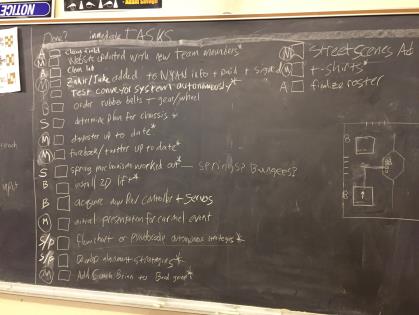 NOTICE
Done? immediate TASKS
A clean field
M website updated with new team members*
B clean lab
M Zakir/Jake added to NYAN info + paid + signed
P Test conveyor system autonomously*
B order rubber belts + gear/wheel
S determine plan for chassis *
M up to date*
M facebook/twitter up to date*
S spring mechanism worked out* — springs? Bungees?
B install 2D lift*
B acquire new Rev controller + servos
M initial presentation for carmel event
S/P flowchart or pseudocode autonomous strategies*
S/P Develop alignment strategies*
M Add Coach Brian to *
M Street scenes Ad
M t-shirts*
A finalize roster
B
B